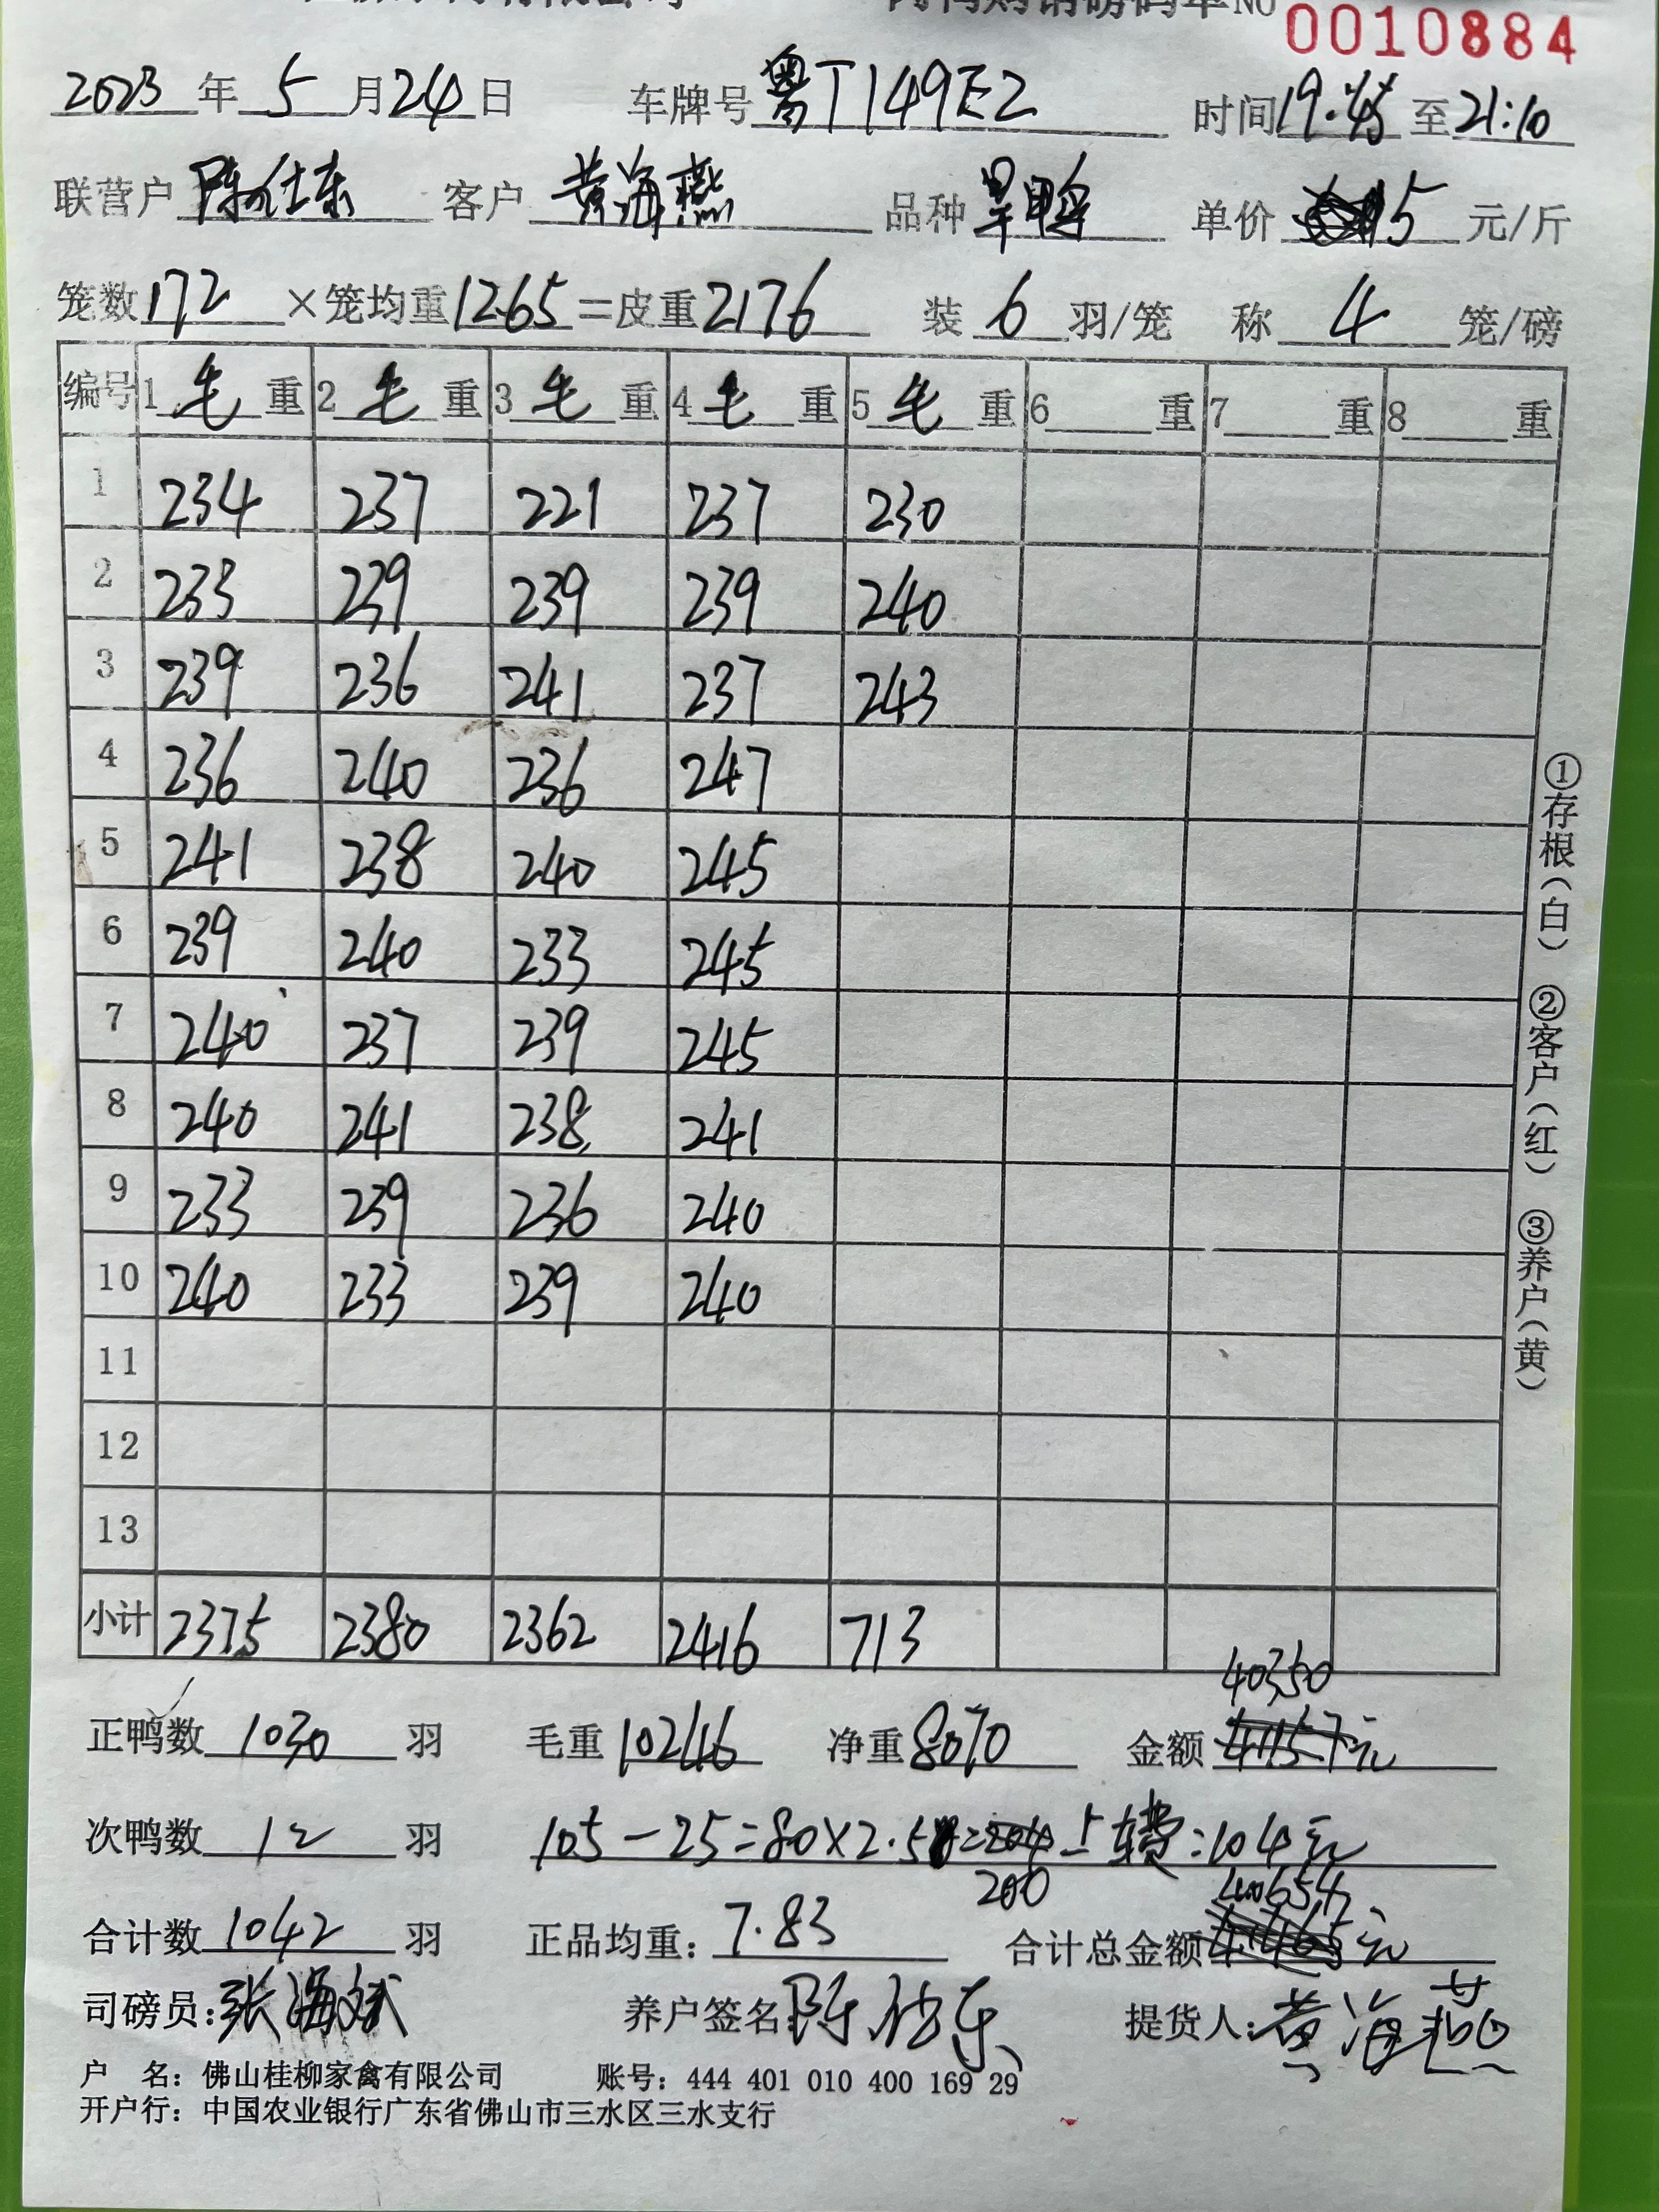 0010884
2023 年 5 月 24 日 车牌号 粤T149E2 时间 19:45 至 21:10
联营户 陈仕东 客户 黄海燕 品种 旱鸭 单价 5 元/斤
笼数 172 ×笼均重 12.65 =皮重 2176 装 6 羽/笼 称 4 笼/磅
编号 1 毛 重 2 毛 重 3 毛 重 4 毛 重 5 毛 重 6 重 7 重 8 重
1 234 237 221 237 230
2 233 239 239 239 240
3 239 236 241 237 243
4 236 240 236 247
5 241 238 240 245
6 239 240 233 245
7 240 237 239 245
8 240 241 238 241
9 233 239 236 240
10 240 233 239 240
11
12
13
小计 2375 2380 2362 2416 713
40350
正鸭数 1030 羽 毛重 10246 净重 8070 金额 元
次鸭数 12 羽 105-25=80×2.5=204 车费:104元
200
40654
合计数 1042 羽 正品均重: 7.83 合计总金额 元
司磅员: 张海斌 养户签名: 陈仕东 提货人: 黄海燕
户 名: 佛山桂柳家禽有限公司 账号: 444 401 010 400 169 29
开户行: 中国农业银行广东省佛山市三水区三水支行
①存根(白) ②客户(红) ③养户(黄)